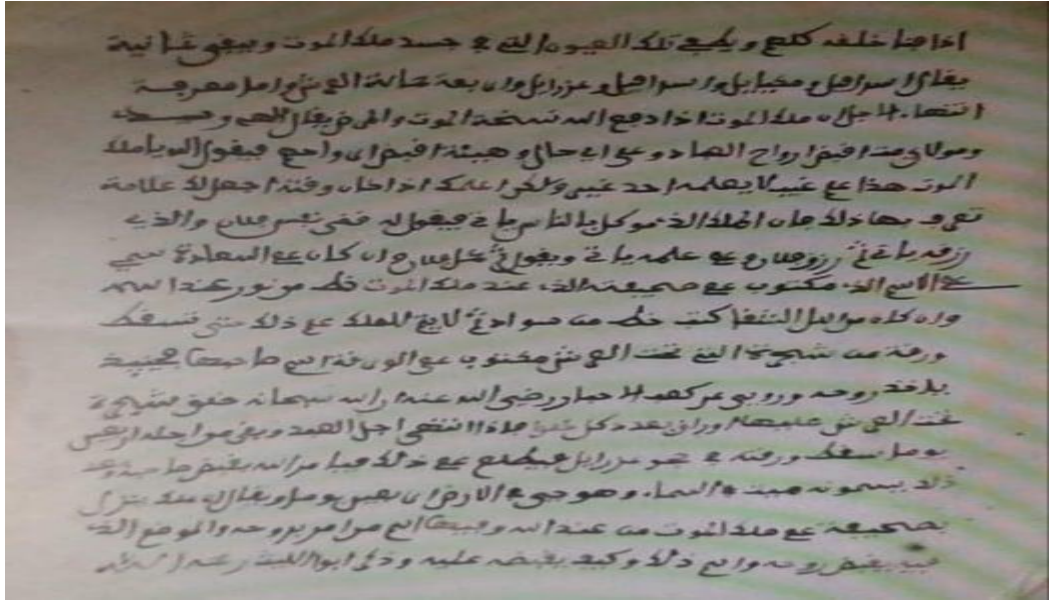 اذا فنا خلفه كلهم و تلك العيون التي في جسد ملك الموت ويبقى ثمانية
يقال اسرافيل و ميكايل و اسرافيل و عزرايل وان بعة حملة العرش واما معرفة
انتهاء الاجل ان ملك الموت اذا دفع الله نسخة الموت والمرض يقال الهي و سيدي
ومولاي متى افبض ارواح العباد و على اي حال و هيئة افبض ارواحهم فيقول الله يا ملك
الموت هذا علم غيب لا يعلمه احد غيري ولكن اعلمك اذا حان وقته اجعل لك علامة
تعرف بها ذلك فان الملك الذي موكل بالناس ياتي فيقول له قضى نفس فلان والذي
رزقه ياتي رزق فلان و عمله ياتي ويقول عمل فلان فان كان من السعادة
على الاسم الذي مكتوب في صحيفته الذي عند ملك الموت خط من نور عند اسمه
وان كان من اهل الشقا كتب خط من سواد للملك علم ذلك حتى تسقط
ورقة من شجرة التي تحت العرش مكتوب على الورقة اسم صاحبها فحينئذ
ياخذ روحه وروي عن كعب الاحبار رضي الله عنه ان الله سبحانه خلق شجرة
تحت العرش عليها اوراق بعدد كل فاذا انقضى اجل العبد وبقي من اجله اربعين
يوما سقط ورقته في حجر عزرايل فيطلع على ذلك فيامر الله بقبض صاحبه
ذلك يسمونه ميت في السماء وهو حي في الارض اربعين يوما ويقال ان ملك ينزل
بصحيفة على ملك الموت من عند الله وفيها اسم من امر بروحه والموضع الذي
فيه يقبض روحه واسم ذلك وكيف يقبضه عليه وذكر ابو الليث رحمه الله